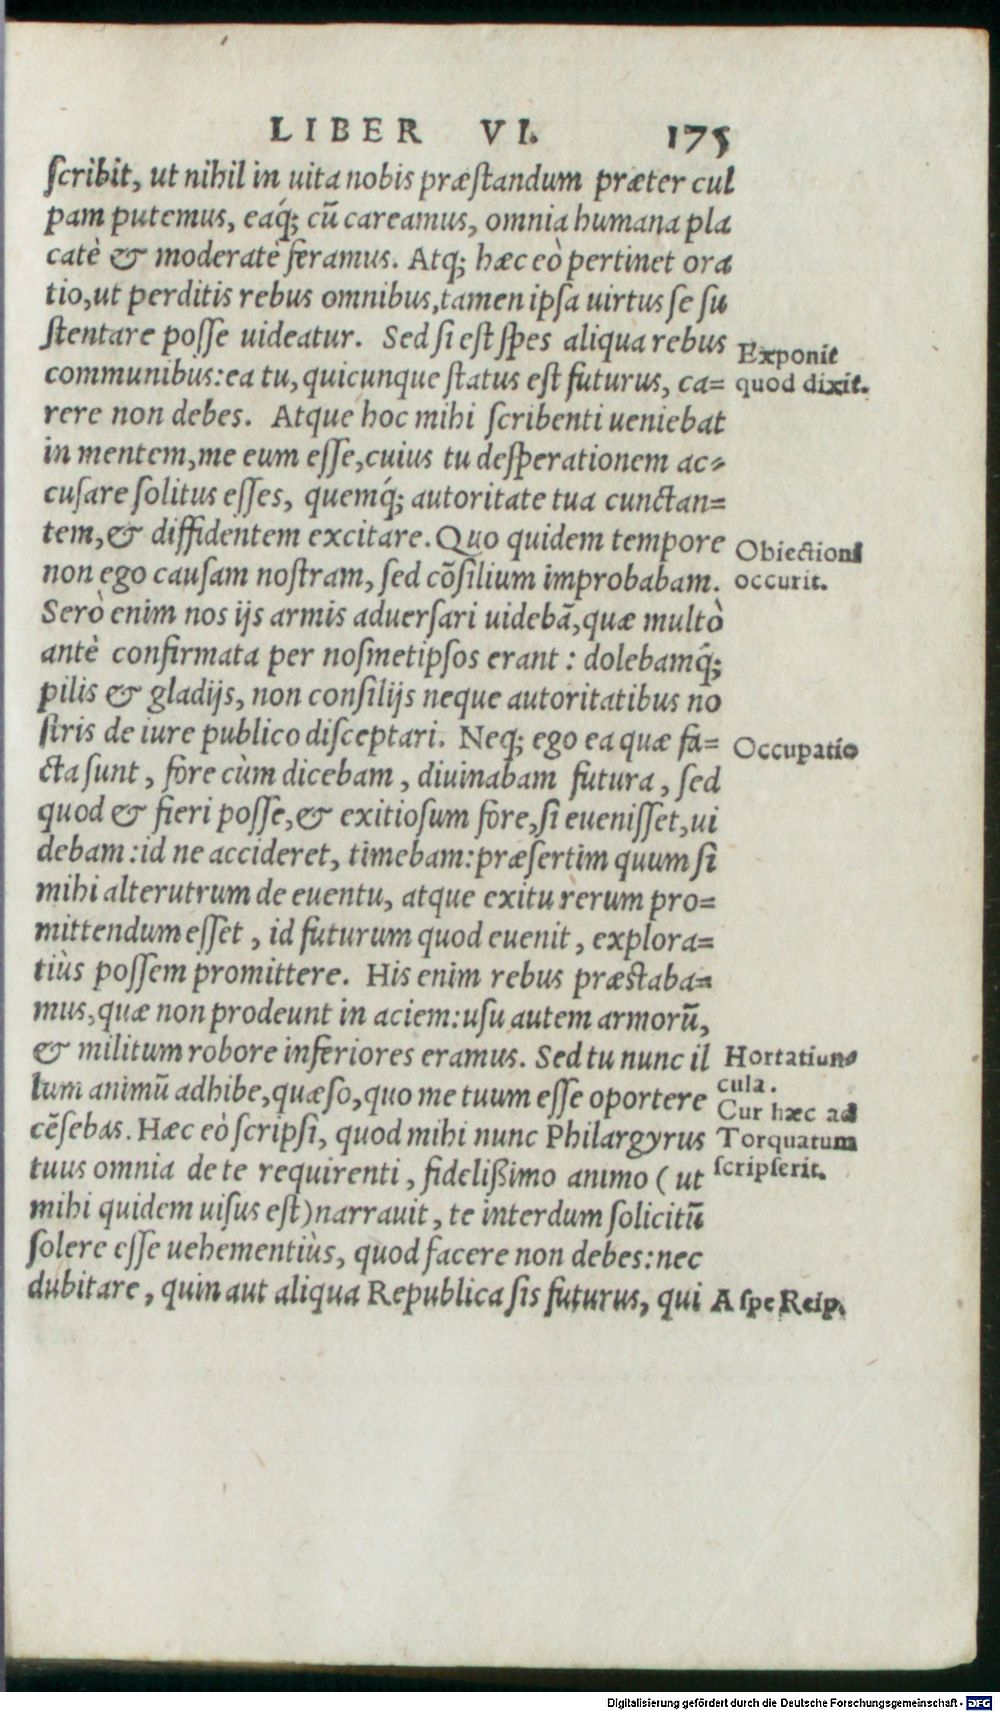 LIBER VI. 175
scribit, ut nihil in uita nobis præstandum præter cul
pam putemus, eáq; cū careamus, omnia humana pla
catè & moderatè feramus. Atq; hæc eò pertinet ora
tio, ut perditis rebus omnibus, tamen ipsa uirtus se su
stentare posse uideatur. Sed si est spes aliqua rebus
Exponit
communibus: ea tu, quicunque status est futurus, ca=
quod dixit.
rere non debes. Atque hoc mihi scribenti ueniebat
in mentem, me eum esse, cuius tu desperationem ac=
cusare solitus esses, quemq́; autoritate tua cunctan=
tem, & diffidentem excitare. Quo quidem tempore
Obiectioni
non ego causam nostram, sed cōsilium improbabam.
occurit.
Serò enim nos ijs armis aduersari uidebā, quæ multò
antè confirmata per nosmetipsos erant: dolebamq́;
pilis & gladijs, non consilijs neque autoritatibus no
stris de iure publico disceptari. Neq; ego ea quæ fa=
Occupatio
cta sunt, fore cùm dicebam, diuinabam futura, sed
quod & fieri posse, & exitiosum fore, si euenisset, ui
debam: id ne accideret, timebam: præsertim quum si
mihi alterutrum de euentu, atque exitu rerum pro=
mittendum esset, id futurum quod euenit, explora=
tiùs possem promittere. His enim rebus præstaba=
mus, quæ non prodeunt in aciem: usu autem armorū,
& militum robore inferiores eramus. Sed tu nunc il
Hortatiun=
lum animū adhibe, quæso, quo me tuum esse oportere
cula.
Cur hæc ad
cēsebas. Hæc eò scripsi, quod mihi nunc Philargyrus
Torquatum
tuus omnia de te requirenti, fidelißimo animo (ut
scripserit.
mihi quidem uisus est) narrauit, te interdum solicitū
solere esse uehementiùs, quod facere non debes: nec
dubitare, quin aut aliqua Republica sis futurus, qui
A spe Reip.
Digitalisierung gefördert durch die Deutsche Forschungsgemeinschaft - DFG